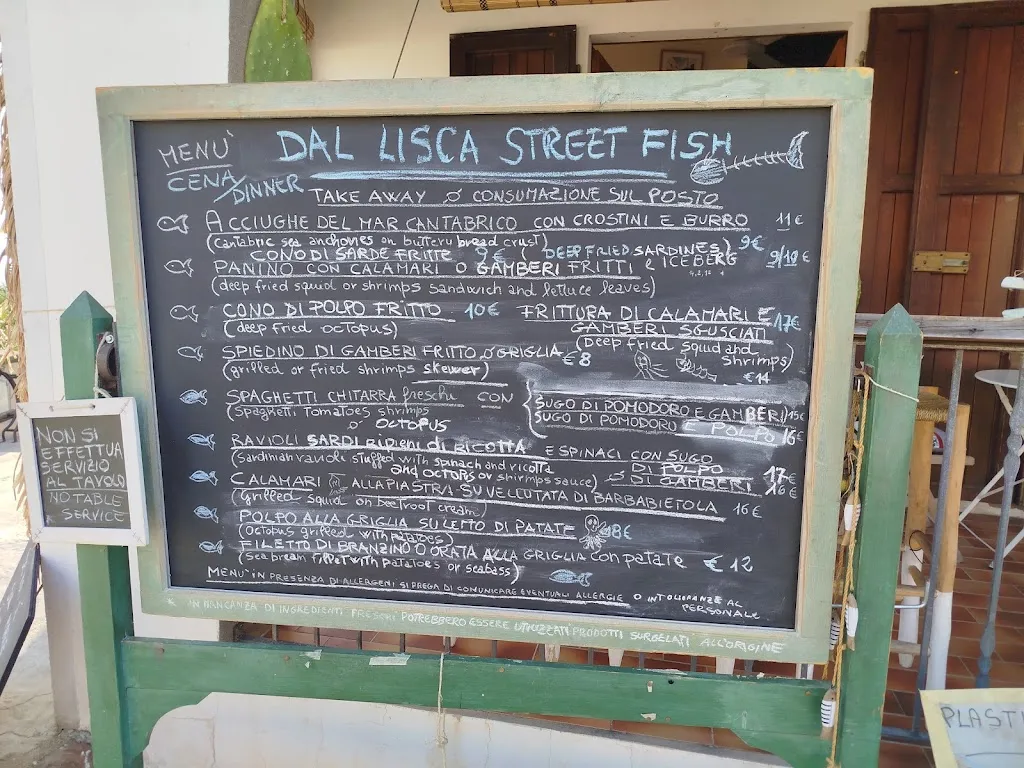 MENÙ
CENA/DINNER
DAL LISCA STREET FISH
TAKE AWAY O CONSUMAZIONE SUL POSTO
ACCIUGHE DEL MAR CANTABRICO CON CROSTINI E BURRO 11€
(cantabric sea anchovies on buttery bread crust)
CONO DI SARDE FRITTE 9€ (DEEP FRIED SARDINES) 9€
PANINO CON CALAMARI O GAMBERI FRITTI E ICEBERG 9/10€
(deep fried squid or shrimps sandwich and lettuce leaves)
CONO DI POLPO FRITTO 10€
(deep fried octopus)
FRITTURA DI CALAMARI E GAMBERI SGUSCIATI 17€
(Deep fried squid and shrimps)
€14
SPIEDINO DI GAMBERI FRITTO O GRIGLIA €8
(grilled or fried shrimps skewer)
SPAGHETTI CHITARRA freschi CON
SUGO DI POMODORO E GAMBERI 15€
SUGO DI POMODORO E POLPO 16€
(Spaghetti Tomatoes shrimps
O OCTOPUS
RAVIOLI SARDI RIPIENI di RICOTTA E SPINACI CON SUGO
DI POLPO 17€
O DI GAMBERI 16€
(Sardinian ravioli stuffed with spinach and ricotta
and octopus or shrimps sauce)
CALAMARI ALLA PIASTRA SU VELLUTATA DI BARBABIETOLA 16€
(Grilled squid on beetroot cream)
POLPO ALLA GRIGLIA SU LETTO DI PATATE 18€
(octopus grilled with potatoes)
FILETTO DI BRANZINO O ORATA ALLA GRIGLIA con patate € 12
(Sea bream fillet with patatoes or seabass)
MENU' IN PRESENZA DI ALLERGENI SI PREGA DI COMUNICARE EVENTUALI ALLERGIE O INTOLLERANZE AL
PERSONALE
IN MANCANZA DI INGREDIENTI FRESCHI POTREBBERO ESSERE UTILIZZATI PRODOTTI SURGELATI ALL'ORIGINE
NON SI
EFFETTUA
SERVIZIO
AL TAVOLO
NO TABLE
SERVICE